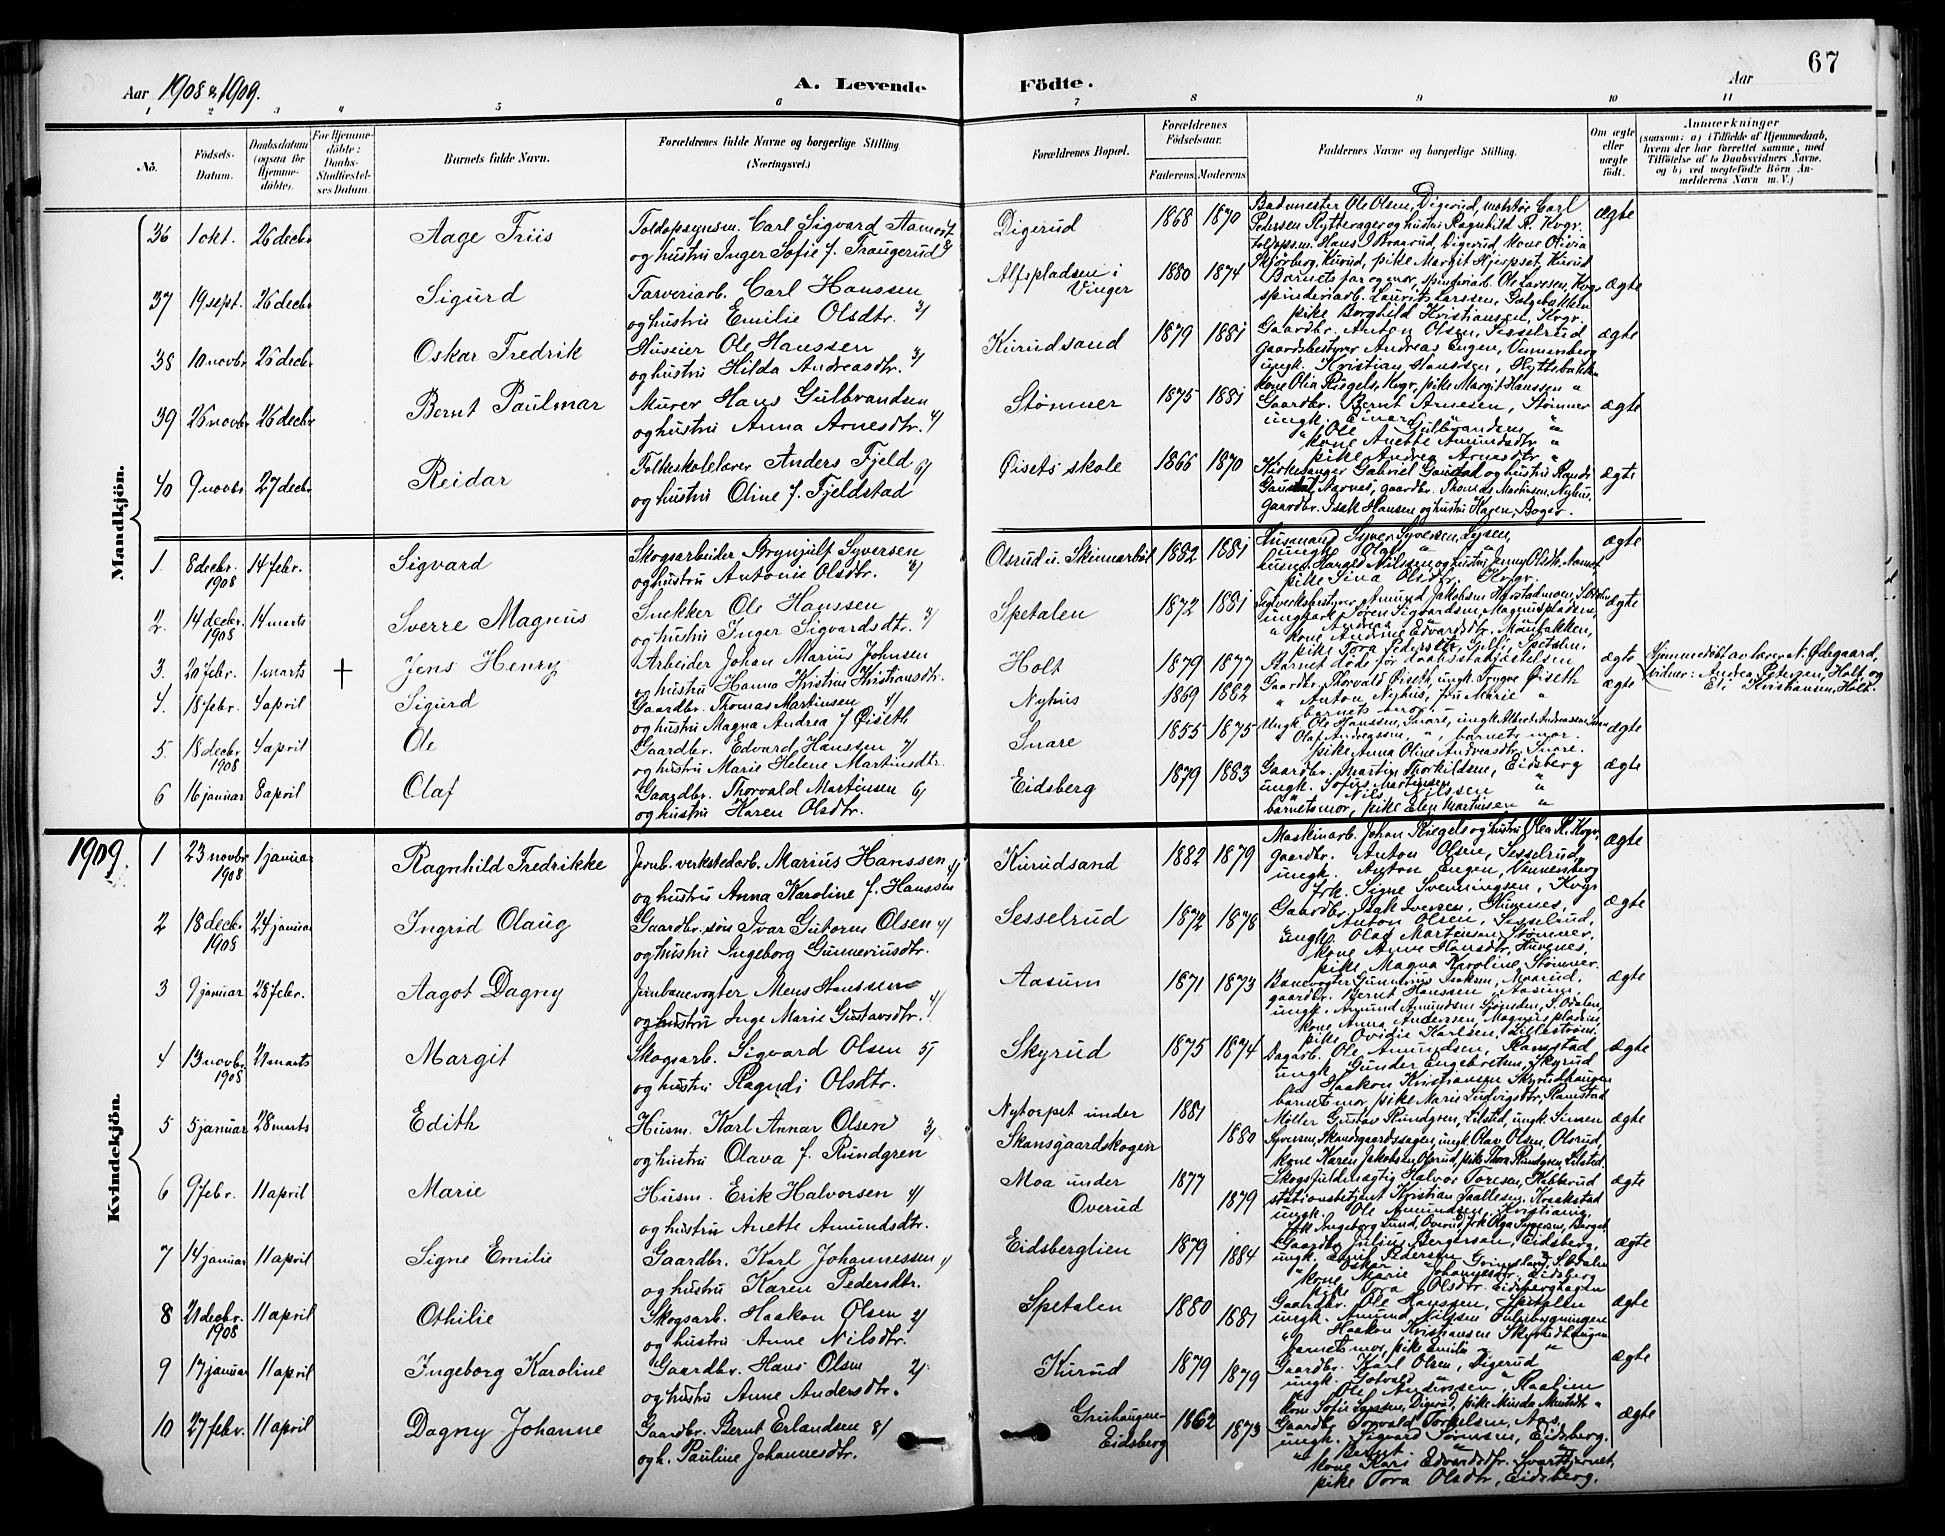 67
Aar 1908 & 1909.
A. Levende Födte.
Aar
1 2 3 4 5 6 7 8 9 10 11
No.
Födsels-Datum.
Daabsdatum (ogsaa for Hjemmedöbte).
For Hjemmedöbte: Daabs-Stadfæstelses Datum.
Barnets fulde Navn.
Forældrenes fulde Navne og borgerlige Stilling (Næringsvei.)
Forældrenes Bopæl.
Forældrenes Födselsaar.
Faderens. Moderens.
Faddernes Navne og borgerlige Stilling.
Om ægte eller uægte födt.
Anmærkninger
(saasom: a) i Tilfælde af Hjemmedaab, hvem der har forrettet samme, med Tilföielse af to Daabsvidners Navne, og b) ved uægtefödte Börn Anmelderens Navn m. V.)
Mandkjön.
36 1 okt. 26 decbr Aage Friis
Toldopsynsm. Carl Sigvard
og hustru Inger Sofie f. Traugerud
Digerud 1868 1870 ægte
Badmester Ole Olsen, Digerud, Carl
Pedersen Rytterager og hustru Ragnhild R. Kvgr.
toldopsm. Hans J Braarud, Digerud, kone Olivia
Kurud, pike Margit Kurud
37 19 sept. 26 decbr Sigurd
Farveriarb. Carl Hanssen
og hustru Emilie Olsdtr. 3/
Alfspladsen i Vinger 1880 1874 ægte
Barnets far og mor, spinderiarb. Ole Larssen, Kvgr
spinderiarb. Laurits Larssen,
pike Borghild Kristiansen, Kvgr.
38 10 novbr 26 decbr Oskar Fredrik
Huseier Ole Hanssen
og hustru Hilda Andreasdtr. 3/
Kurudsand 1879 1881 ægte
Gaardbr. Anton Olsen, Sesselrud
gaardsbestyrer Andreas Engen, Vennersberg
ungk. Kristian Hanssen, Hyttebakken
kone Olia Riegels, Kvgr, pike Margit Hanssen "
39 26 novbr 26 decbr Bernt Paulmar
Murer Hans Gulbrandsen
og hustru Anna Arnesdtr. 4/
Stømner 1875 1881 ægte
Gaardbr. Bernt Arnesen, Stømner
ungk. Einar "
" Ole Gulbrandsen "
kone Anette Amundsdtr "
pike Andrea Arnesdtr "
40 9 novbr 27 decbr Reidar
Folkeskolelærer Anders Fjeld 6/
og hustru Oline f. Fjeldstad
Øisets skole 1866 1870 ægte
Kirkesanger Gabriel Gaustad og hustru Randi
Gaustad, Nærnes, gaardbr. Thomas Martinsen, Nyhus,
Gaardbr. Isak Hansen og hustru Karen, Boger.
1 8 decbr 1908 14 febr. Sigvard
Skogsarbeider Brynjulf Syversen
og hustru Antonie Olsdtr.
Olsrud u. Skinnarbøl 1882 1881 ægte
Husmand Syver Syversen, Lysen,
ungk. Olaf " "
husm. Harald Nilssen og hustru Jenny Olsdtr,
pike Sina Olsdtr. Kvgr.
2. 14 decbr. 1908 14 marts Sverre Magnus
Snekker Ole Hanssen
og hustru Inger Sigvardsdtr. 3/
Spetalen 1872 1881 ægte
Amund Jakobsen
ungkark Søren Sigvardsen, Magnuspladsen,
" Andreas "
kone Andrine Edvardsdtr.
pike Tora Spetalen.
3. 20 febr. 1 marts + Jens Henry
Arbeider Johan Marius Johnsen
og hustru Hanna Kristine Kristiansdtr.
Holt 1879 1877 ægte
Barnet døde før daabsstadfæstelsen
Hjemmedøbt av lærer N. Ødegaard,
vidner: Andrea Petersen, Holt og
Eli Kristiansen, Holt.
4. 18 febr. 4 april Sigurd
Gaardbr. Thomas Martinsen 1/
og hustru Magna Andrea f Øiseth
Nyhus 1869 1882 ægte
Gaardbr. Thorvald Øiseth, ungk. Trygve Øiseth
" Anton Nyhus, fru Marie "
barnets mor.
5. 18 decbr 1908 4 april Ole
Gaardbr. Edvard Hanssen 7/
og hustru Marie Helene Martinsdtr.
Snare 1855 1875 ægte
Ungk. Ole Hanssen, Snare, ungk. Albert Andreassen
" Olaf Andreassen, " , barnets mor.
pike Anna Oline Andreasdtr. Snare.
6 16 januar 8 april Olaf
Gaardbr. Thorvald Martinsen 6/
og hustru Karen Olsdtr.
Eidsberg 1879 1883 ægte
Gaardbr. Martin Thorkildsen, Eidsberg
ungk. Sofus Martinsen "
" Nils Nilssen "
barnets mor, pike Elen Martinsen "
1909.
Kvindekjön.
1 23 novbr 1908 1 januar Ragnhild Fredrikke
Jernb. verkstedarb. Marius Hanssen 4/
og hustru Anna Karoline f. Hanssen
Kurudsand 1882 1879 ægte
Maskinarb. Johan Riegels og hustru Olea R. Kvgr,
gaardbr. Anton Olsen, Sesselrud,
ungk. Anton Engen, Vennersberg
frk. Signe Svenningsen, Kvgr
2 18 decbr 1908 24 januar Ingrid Olaug
Gaardbr. søn Ivar Gutorm Olsen 4/
og hustru Ingeborg Gunneriusdtr.
Sesselrud 1872 1878 ægte
Gaardbr. Isak Iversen, Huvenes,
" Anton Olsen, Sesselrud,
ungk. Olaf Martinsen, Stømner,
kone Anne Hansdtr, Huvenes,
pike Magna Karoline Stømner.
3 9 januar 28 febr. Aagot Dagny
Jernbanevogter Mens Hanssen
og hustru Inge Marie Gustavsdtr. 4/
Aasum 1871 1873 ægte
Banevogter Gunerius Isaksen,
gaardbr. Bernt Hanssen, Aasum,
ungk. Amund Amundsen S. Odalen,
kone Anna Andersen, Magnuspladsen,
pike Ovidie Karlsen, Lillestrøm.
4 13 novbr. 1908 21 marts Margit
Skogsarb. Sigvard Olsen 5/
og hustru Ragndi Olsdtr.
Skyrud 1875 1874 ægte
Dagarb. Ole Amundsen, Ramstad
ungk. Gunder Engebretsen, Skyrud
" Haakon Kristiansen Skyrudhaugen
barnets mor, pike Marie Ludvigsdtr, Ramstad
5 5 januar 28 marts Edith
Husm. Karl Annar Olsen 3/
og hustru Olava f. Rundgren
Nytorpet under Skansgaardskogen 1881 1880 ægte
Møller Gustav Rundgren, Lilstad, ungk. Simen
Syversen, Skansgaardssagen, ungk. Olav Olsen, Olsrud,
kone Karen Jakobsen Olsrud, pike Thora Rundgren, Lilstad.
6 9 febr. 11 april Marie
Husm. Erik Halvorsen 4/
og hustru Anette Amundsdtr.
Moa under Overud 1877 1879 ægte
Skogsfuldmægtig Halvor Toresen, Habberud
stationsbetjent Kristian Taallesen, Kraakstad
ungk. Ole Amundsen, Kristiania,
frk Ingeborg Lund, Overud, frk Olga Syversen,
7 14 januar 11 april Signe Emilie
Gaardbr. Karl Johannessen 1/
og hustru Karen Pedersdtr.
Eidsberglien 1879 1884 ægte
Gaardbr. Julius Bergersen, Eidsberg,
ungk. Emil Pedersen "
" Oskar " Grimstad, S. Odalen
kone Marie Johannesdtr, Eidsberg
pike Tora Olsdtr. Eidsberghagen
8 21 decbr. 1908 11 april Othilie
Skogsarb. Haakon Olsen 2/
og hustru Anne Nilsdtr.
Spetalen 1880 1881 ægte
Gaardbr. Ole Hanssen, Spetalen
ungk. Amund Nilssen Nybygningen
" Haakon Kristiansen Skyrudhaugen
barnets mor, pike Emilie "
9 17 januar 11 april Ingeborg Karoline
Gaardbr. Hans Olsen 2/
og hustru Anne Andersdtr.
Kurud 1879 1879 ægte
Gaardbr. Karl Olsen, Digerud
ungk. Gotvald " "
" Ole Andersen, Raalien
kone Sofie Larssen, Digerud, pike Minda "
10 27 febr. 11 april Dagny Johanne
Gaardbr. Bernt Erlandsen 8/
og h. Pauline Johannesdtr.
Gruhaugen Eidsberg 1862 1873 ægte
Gaardbr Torvald Torkelsen, Aas,
ungk. Sigvard Sørensen, Eidsberg.
" Bernt " "
kone Kari Edvardsdtr. Svarttjernet,
pike Tora Olsdtr, Eidsberg.